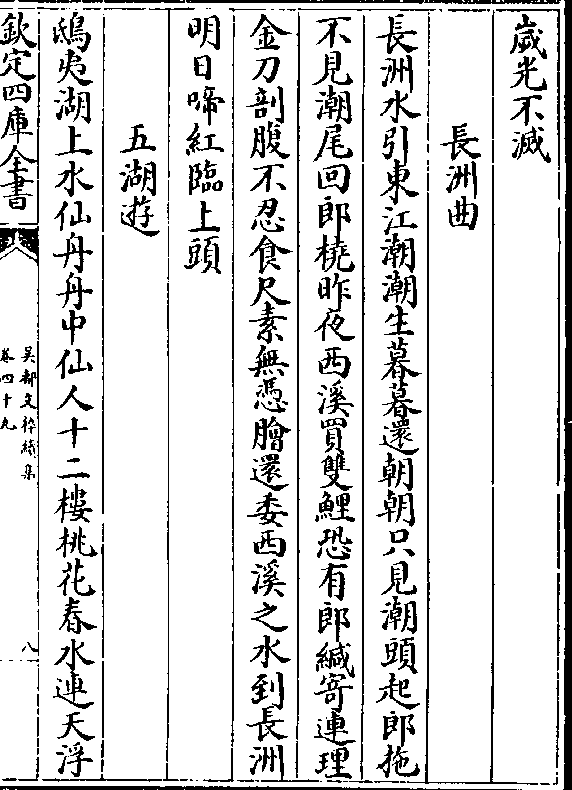 歲光不滅
長洲曲
長洲水引東江潮潮生暮暮還朝朝只見潮頭起郎拖
不見潮尾回郎橈昨夜西溪買雙鯉恐有郎緘寄連理
金刀剖腹不忍食尺素無憑膾還委西溪之水到長洲
明日啼紅臨上頭
五湖游
鴟夷湖上水仙舟舟中仙人十二樓桃花春水連天浮
欽定四庫全書
吳都文粹續集
卷四十九
八